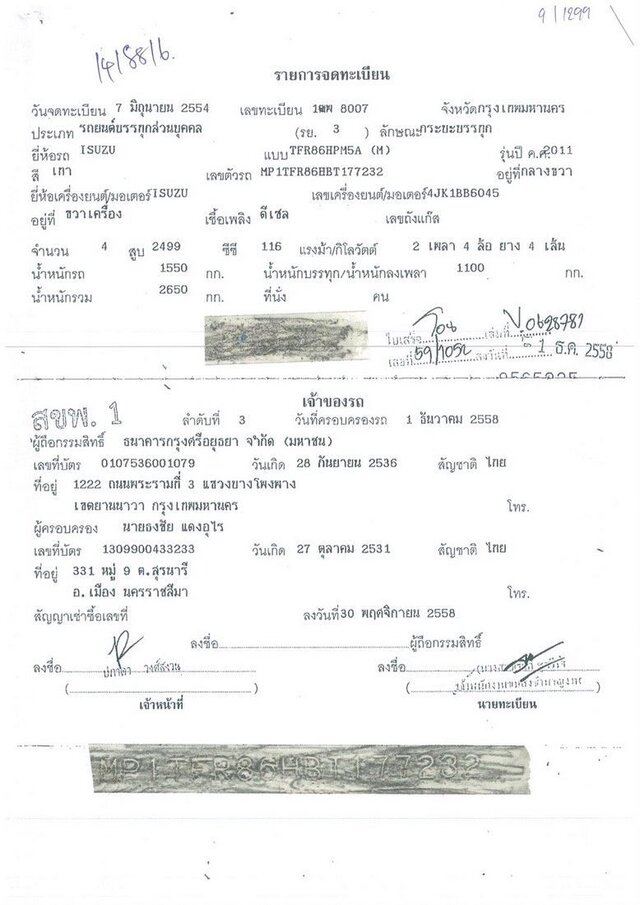 9/1299
14/88/6.
รายการจดทะเบียน
วันจดทะเบียน 7 มิถุนายน 2554 เลขทะเบียน 8007 จังหวัดกรุงเทพมหานคร
ประเภท รถยนต์บรรทุกส่วนบุคคล (รย. 3 ) ลักษณะกระบะบรรทุก
ยี่ห้อรถ ISUZU แบบ TFR86HPM5A (M) รุ่นปี ค.ศ.2011
สี เทา เลขตัวรถ MP1TFR86HBT177232 อยู่ที่กลางขวา
ยี่ห้อเครื่องยนต์/มอเตอร์ISUZU เลขเครื่องยนต์/มอเตอร์4JK1BB6045
อยู่ที่ ขวาเครื่อง เชื้อเพลิง ดีเซล เลขถังแก๊ส
จำนวน 4 สูบ 2499 ซีซี 116 แรงม้า/กิโลวัตต์ 2 เพลา 4 ล้อ ยาง 4 เส้น
น้ำหนักรถ 1550 กก. น้ำหนักบรรทุก/น้ำหนักลงเพลา 1100 กก.
น้ำหนักรวม 2650 กก. ที่นั่ง คน
ใบเสร็จ เล่มที่ 0628781
เลขที่ 59/1052 ลงวันที่ 1 ธ.ค. 2558
เจ้าของรถ
สขพ. 1 ลำดับที่ 3 วันที่ครอบครองรถ 1 ธันวาคม 2558
ผู้ถือกรรมสิทธิ์ ธนาคารกรุงศรีอยุธยา จำกัด (มหาชน)
เลขที่บัตร 0107536001079 วันเกิด 28 กันยายน 2536 สัญชาติ ไทย
ที่อยู่ 1222 ถนนพระรามที่ 3 แขวงบางโพงพาง
เขตยานนาวา กรุงเทพมหานคร โทร.
ผู้ครอบครอง นายธงชัย แดงอุไร
เลขที่บัตร 1309900433233 วันเกิด 27 ตุลาคม 2531 สัญชาติ ไทย
ที่อยู่ 331 หมู่ 9 ต.สุรนารี
อ.เมือง นครราชสีมา โทร.
สัญญาเช่าซื้อเลขที่ ลงวันที่30 พฤศจิกายน 2558
ลงชื่อ ผู้ถือกรรมสิทธิ์
ลงชื่อ ลงชื่อ
เจ้าหน้าที่ นายทะเบียน
MP1TFR86HBT177232